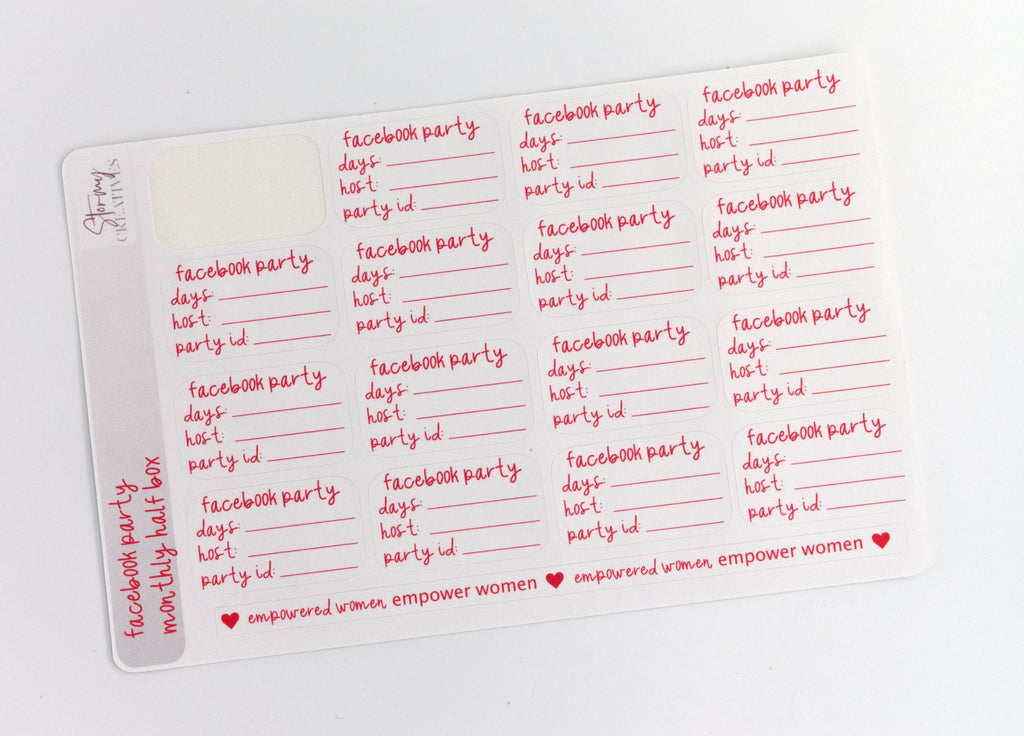 Stormy
CREATIVES
facebook party
monthly half box
facebook party
days:
host:
party id:
facebook party
days:
host:
party id:
facebook party
days:
host:
party id:
facebook party
days:
host:
party id:
facebook party
days:
host:
party id:
facebook party
days:
host:
party id:
facebook party
days:
host:
party id:
facebook party
days:
host:
party id:
facebook party
days:
host:
party id:
facebook party
days:
host:
party id:
facebook party
days:
host:
party id:
facebook party
days:
host:
party id:
facebook party
days:
host:
party id:
facebook party
days:
host:
party id:
facebook party
days:
host:
party id:
empowered women empower women empowered women empower women